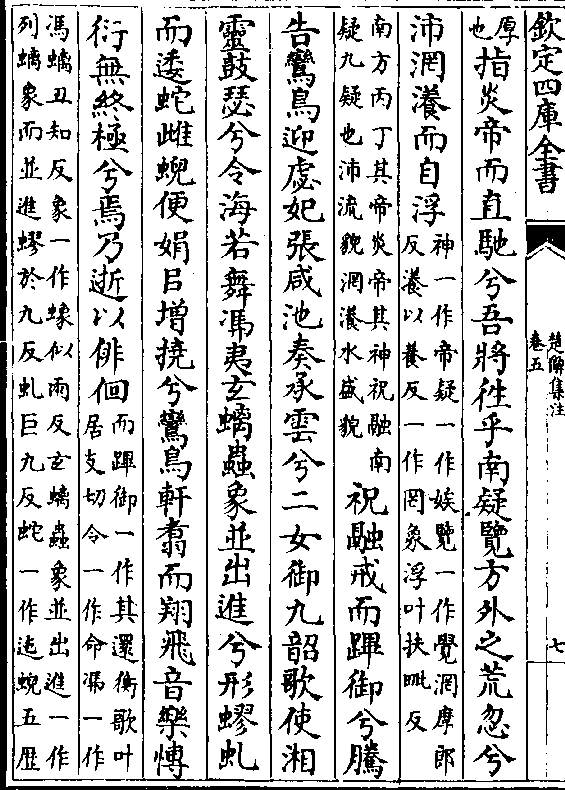 欽定四庫全書
楚辭集注
卷五
七
厚
也指炎帝而直馳兮吾將徃乎南疑覽方外之荒忽兮
沛罔瀁而自浮
神一作帝疑一作娭覽一作覺罔摩郎
反瀁以養反一作罔象浮叶扶毗反
南方丙丁其帝炎帝其神祝融南
疑九疑也沛流貌罔瀁水盛貌
祝融戒而蹕御兮騰
告鸞鳥迎虙妃張咸池奏承雲兮二女御九韶歌使湘
靈鼓瑟兮令海若舞馮夷玄螭蟲象並出進兮形蟉虬
而逶蛇雌蜺便娟㠯增撓兮鸞鳥軒翥而翔飛音樂愽
衍無終極兮焉乃逝以俳佪
而蹕御一作其還衡歌叶
居支切令一作命馮一作
馮螭丑知反象一作蟓似兩反玄螭蟲象並出進一作
列螭象而並進蟉於九反虬巨九反蛇一作迤蜺五歴